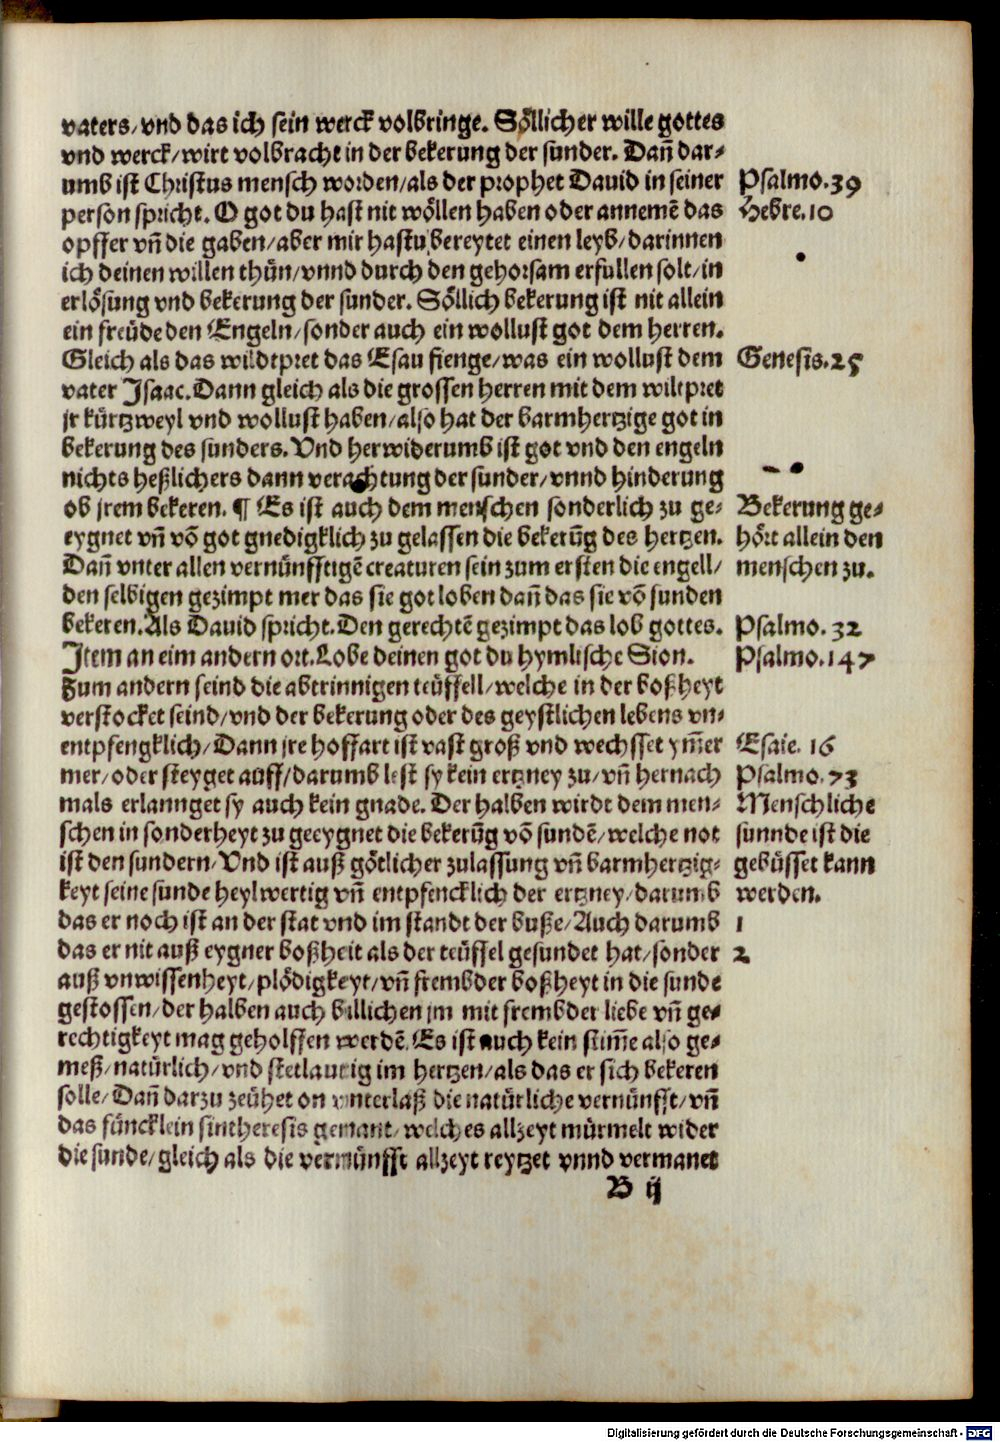 vaters/vnd das ich sein werck volbringe. Söllicher wille gottes
vnd werck/wirt volbracht in der bekerung der sunder. Dañ dar-
umb ist Christus mensch worden/als der prophet Dauid in seiner
person spricht. O got du hast nit wöllen haben oder annemē das
opffer vñ die gaben/aber mir hastu bereytet einen leyb/darinnen
ich deinen willen thün/vnnd durch den gehorsam erfullen solt/in
erlösung vnd bekerung der sunder. Söllich bekerung ist nit allein
ein freüde den Engeln/sonder auch ein wollust got dem herren.
Gleich als das wildtpret das Esau fienge/was ein wollust dem
vater Isaac. Dann gleich als die grossen herren mit dem wiltpret
jr kürtzweyl vnd wollust haben/also hat der barmhertzige got in
bekerung des sunders. Vnd herwiderumb ist got vnd den engeln
nichts heßlichers dann verachtung der sunder/vnnd hinderung
ob jrem bekeren. ¶ Es ist auch dem menschen sonderlich zu ge-
eygnet vñ vō got gnedigklich zu gelassen die bekerūg des hertzen.
Dañ vnter allen vernünfftigē creaturen sein zum ersten die engell/
den selbigen gezimpt mer das sie got loben dañ das sie vō sunden
bekeren. Als Dauid spricht. Den gerechtē gezimpt das lob gottes.
Item an eim andern ort. Lobe deinen got du hymlische Sion.
Zum andern seind die abtrinnigen teüffell/welche in der boßheyt
verstocket seind/vnd der bekerung oder des geystlichen lebens vn-
entpfengklich/Dann jre hoffart ist vast groß vnd wechsset ym̄er
mer/oder steyget auff/darumb lest sy kein ertzney zu/vñ hernach
mals erlannget sy auch kein gnade. Der halben wirdt dem men-
schen in sonderheyt zu geeygnet die bekerūg vō sundē/welche not
ist den sundern/Vnd ist auß götlicher zulassung vñ barmhertzig-
keyt seine sunde heylwertig vñ entpfencklich der ertzney/darumb
das er noch ist an der stat vnd im standt der buße/Auch darumb
das er nit auß eygner boßheit als der teüffel gesundet hat/sonder
auß vnwissenheyt/plödigkeyt/vñ frembder boßheyt in die sunde
gestossen/der halben auch billichen jm mit frembder liebe vñ ge-
rechtigkeyt mag geholffen werdē. Es ist auch kein stim̄e also ge-
meß/natürlich/vnd stetlautig im hertzen/als das er sich bekeren
solle/Dañ darzu zeühet on vnterlaß die natürliche vernünfft/vñ
das füncklein sintheresis genant/welches allzeyt mürmelt wider
die sunde/gleich als die vernünfft allzeyt reytzet vnnd vermanet
B ij
Psalmo.39
Hebre.10
Genesis.25
Bekerung ge-
hört allein den
menschen zu.
Psalmo.32
Psalmo.147
Esaie. 16
Psalmo.73
Menschliche
sunnde ist die
gebüsset kann
werden.
1
2
Digitalisierung gefördert durch die Deutsche Forschungsgemeinschaft - DFG